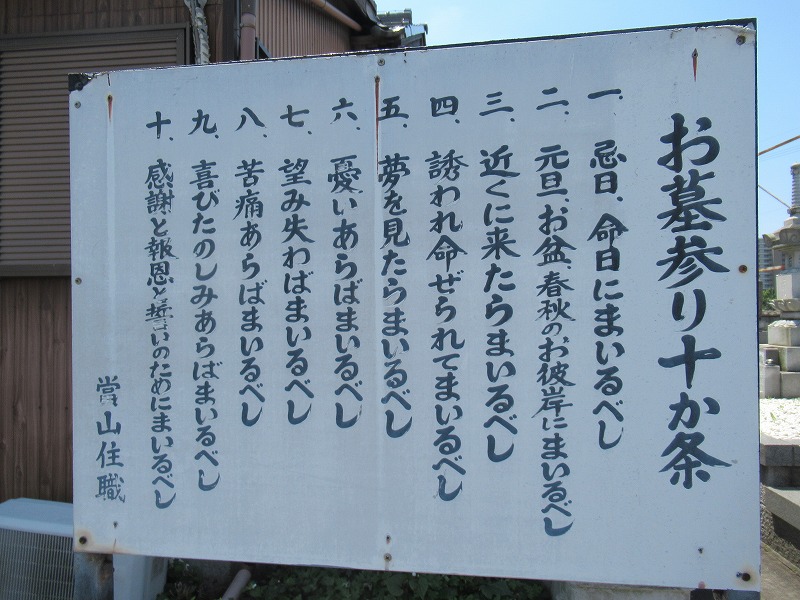 お墓参り十か条
一、忌日、命日にまいるべし
二、元旦、お盆、春秋のお彼岸にまいるべし
三、近くに来たらまいるべし
四、誘われ命ぜられてまいるべし
五、夢を見たらまいるべし
六、憂いあらばまいるべし
七、望み失わばまいるべし
八、苦痛あらばまいるべし
九、喜びたのしみあらばまいるべし
十、感謝と報恩と誓いのためにまいるべし
當山住職